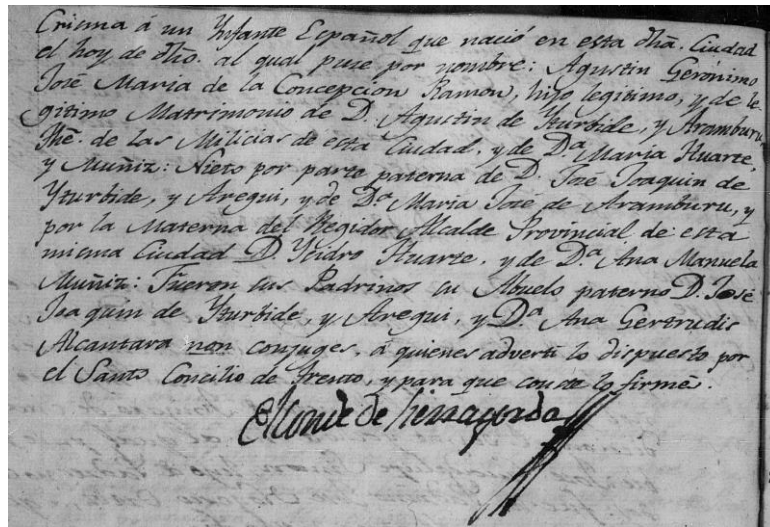 Crisma á un Ynfante Español que nació en esta dha. Ciudad
el hoy de dho. al qual puse por nombre: Agustin Gerónimo
José Maria de la Concepcion Ramon, hijo legitimo, y de le-
gitimo Matrimonio de D. Agustin de Yturbide, y Aramburu,
The. de las Milicias de esta Ciudad, y de Dª Maria Huarte,
y Muñiz: Nieto por parte paterna de D. José Joaquin de
Yturbide, y Aregui, y de Dª Maria José de Aramburu, y
por la Materna del Regidor Alcalde Provincial de esta
misma Ciudad D. Ysidro Huarte, y de D.ª Ana Manuela
Muñiz: Fueron sus Padrinos su Abuelo paterno D. José
Joaquin de Yturbide, y Aregui, y D.ª Ana Gertrudis
Alcantara non conjuges, á quienes advertí lo dispuesto por
el Santo Concilio de Trento, y para que conste lo firmé.
El Conde de Sierragorda